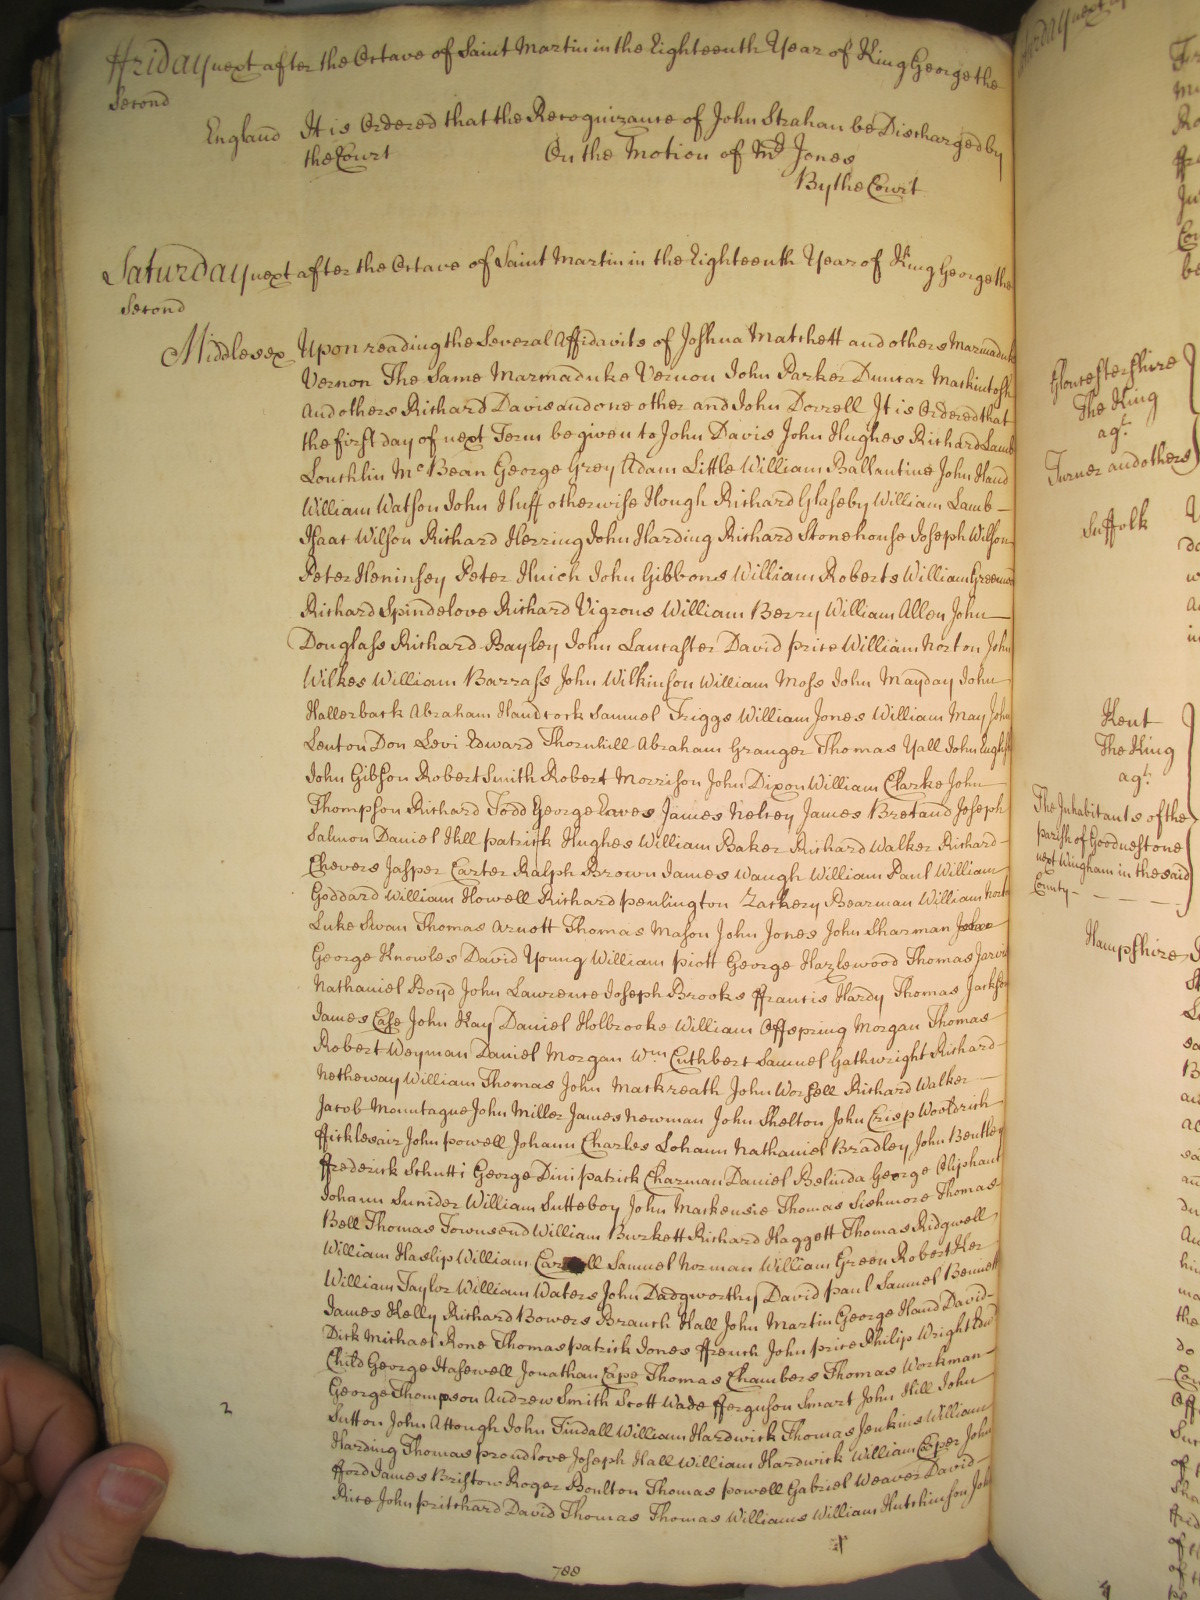 ffriday next after the Octave of Saint Martin in the Eighteenth Year of King George the
Second
England It is Ordered that the Recognizance of John Strahan be Discharged by
the Court On the Motion of Mr. Jones
By the Court
Saturday next after the Octave of Saint Martin in the Eighteenth Year of King George the
Second
Middlesex Upon reading the Several Affidavits of Joshua Matchett and others Marmaduke
Vernon The Same Marmaduke Vernon John Parker Duncar Mackintosh
And others Richard Davis and one other and John Dorrell It is Ordered that
the first day of next Term be given to John Davis John Hughes Richard Lamb
Louchlin Mc Bean George Grey Adam Little William Ballantine John Hand
William Watson John Huff otherwise Hough Richard Glaseby William Lamb
Isaac Wilson Richard Herring John Harding Richard Stonehouse Joseph Wilson
Peter Heninsey Peter Huich John Gibbons William Roberts William
Richard Spindelove Richard Vigrous William Berry William Allen John
Douglass Richard Bayley John Lancaster David price William Norton John
Wilkes William Barrass John Wilkinson William Moss John Mayday John
Hallerback Abraham Handcock Samuel Triggs William Jones William May John
Lenton Don Levi Edward Thornhill Abraham Granger Thomas Yall John
John Gibson Robert Smith Robert Morrison John Dixon William Clarke John
Thompson Richard Todd George Eaves James Nelsey James Bretand Joseph
Salmon Daniel Hill patrick Hughes William Baker Richard Walker Richard
Chevers Jasper Carter Ralph Brown James Waugh William Paul William
Goddard William Howell Richard penlington Zackery Bearman William
Luke Swan Thomas Arnott Thomas Mason John Jones John Sharman
George Knowles David Young William piott George Hazlewood Thomas Jarvis
Nathaniel Boyd John Lawrence Joseph Brooks ffrancis Hardy Thomas Jackson
James Case John Kay Daniel Holbrooke William Offspring Morgan Thomas
Robert Weyman Daniel Morgan Wm Cuthbert Samuel Gathwright Richard
Netheway William Thomas John Mackreath John Worsell Richard Walker
Jacob Mountague John Miller James Newman John Shelton John Crisp Wooldrich
fficklesair John powell Johann Charles Lohann Nathaniel Bradley John Bentley
ffrederick Schutti George Dini patrick Charman Daniel Belinda George Oliphant
Johann Sunider William Sutteboy John Mackensie Thomas Sishmore Thomas
Bell Thomas Townsend William Burkett Richard Haggett Thomas Ridgwell
William Haslip William Samuel Norman William Green Robert Ker
William Taylor William Waters John Dadgworthy David paul Samuel Bennett
James Kelly Richard Bowers Branch Hall John Martin George Hand David
Dick Michael Rone Thomas patrick Jones ffrench John price Philip Wright
Child George Hasewell Jonathan Cape Thomas Chambers Thomas Workman
George Thompson Andrew Smith Scott Wade fferguson Smart John Hill John
Sutton John Attough John Tindall William Hardwick Thomas Jenkins William
Harding Thomas proudlove Joseph Hall William Hardwick William Coper John
fford James Bristow Roger Boulton Thomas powell Gabriel Weaver David
Rice John pritchard David Thomas Thomas Williams William Hutchinson John
2
788
Gloucestershire
The King
agt.
Turner and others
Suffolk
Kent
The King
agt.
The Inhabitants of the
parish of Goodnestone
next Wingham in the said
County
Hampshire